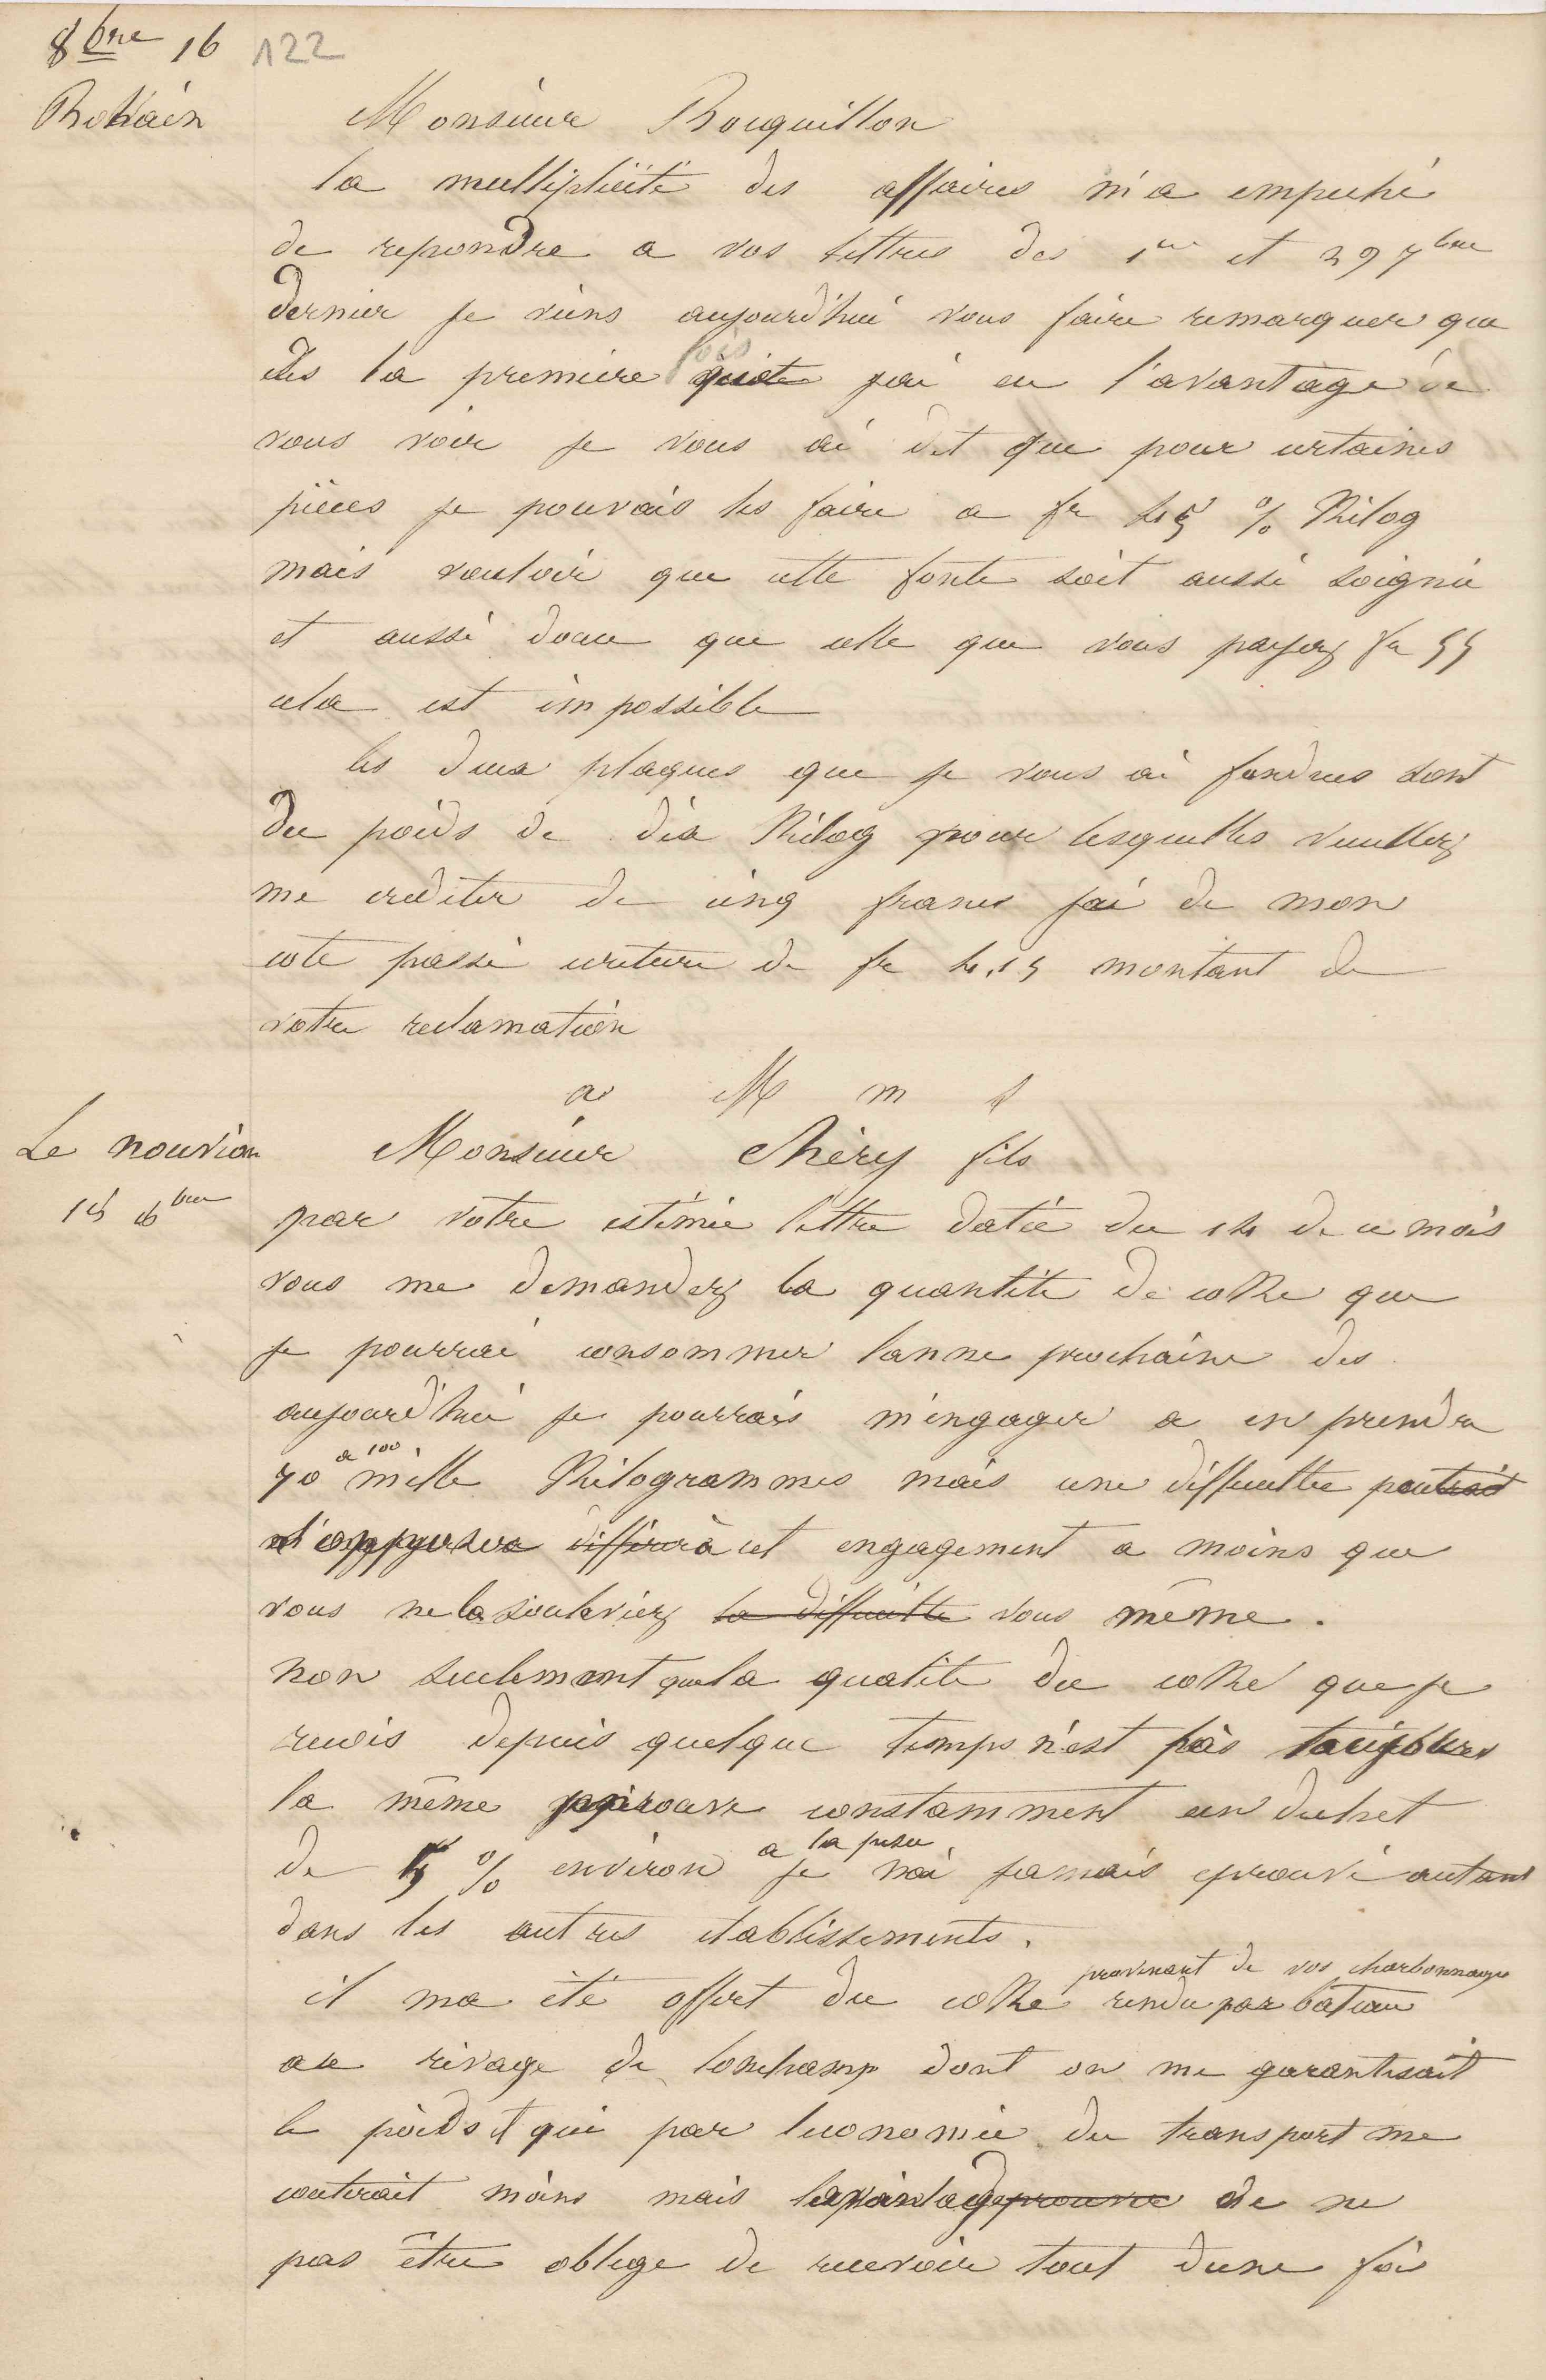 8bre 16 122
Bohain
Monsieur Bouquillon
la multipliciité des affaires m'a empeché
de repondre a vos lettres des 1er et 29 7bre
dernier je viens aujourd'hui vous faire remarquer que
dès la premiere fois que jai eu l'avantage de
vous voir je vous ai dit que pour certaines
pièces je pouvais les faire a fr 45 % Kilog
mais vouloir que cette fonte soit aussi soignie
et aussi douce que celle que vous payez fr 55
cela est impossible
les deux plaques que je vous ai fondues sont
du poids de dix Kilog pour lesquelles veuillez
me crediter de cinq francs jai de mon
coté passé ecriture de fr 4.15 montant de
votre reclamation
a M m s
Le nouvion Monsieur Chéry fils
15 8bre
par votre estimée lettre datée du 14 de ce mois
vous me demandez la quantité de coke que
je pourrai consommer lanne prochaine des
aujourd'hui je pourrais m'engager a en prendre
a 100
70 mille Kilogrammes mais une difficultée peut
s'opposer à cet engagement a moins que
vous ne la souleviez la difficulté vous même.
non seulement que la qualité du coke que je
recois depuis quelque temps n'est pas toujours
la même jeprouve constamment un dechet
a la pesee
de 5 % environ je nai jamais eprouvé autant
dans les autres etablissements.
provenant de vos charbonnages
il ma été offert du coke rendu par bateau
au rivage de lonchamp dont on me garantisait
le poids et qui par leconomie du transport me
couterait moins mais lavantage de ne
pas être oblige de recevoir tout dune fois